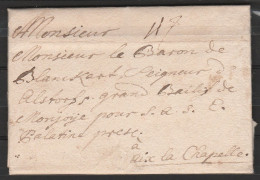 Monsieur
Monsieur le Baron de
Blanckart Seigneur
Alstorff grand Bailif de
Monjoye pour S. A. S. E.
Palatine prest.
a
Aix la Chapelle.